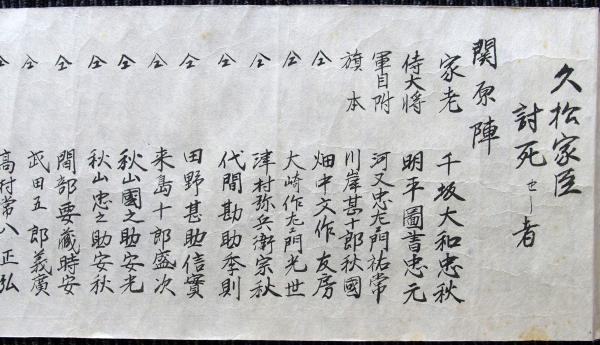 久松家臣
討死せし者
関原陣
家老 千坂大和忠秋
侍大将 明平圖書忠元
軍目附 河又忠左エ門祐常
旗本 川岸甚十郎秋國
仝 畑中文作友房
仝 大崎作左エ門光世
仝 津村弥兵衛宗秋
仝 代間勘助季則
仝 田野甚助信實
仝 来島十郎盛次
仝 秋山國之助安光
仝 秋山忠之助安秋
仝 間部要蔵時安
仝 武田五郎義廣
仝 高村常八正弘